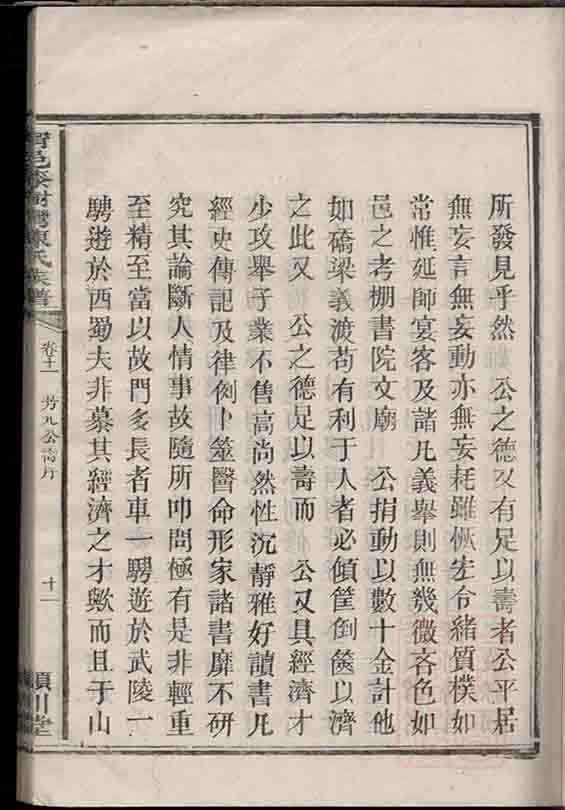 所發見乎然　公之德又有足以壽者公平居
無妄言無妄動亦無妄耗雖恢宏令緒質樸如
常惟延師宴客及諸凡義舉則無幾微吝色如
邑之考棚書院文廟　公捐動以數十金計他
如橋梁義渡苟有利于人者必傾筐倒篋以濟
之此又　公之德足以壽而　公又具經濟才
少攻舉子業不售高尚然性沉靜雅好讀書凡
經史傳記及律例卜筮醫命形家諸書靡不研
究其論斷人情事故隨所叩問極有是非輕重
至精至當以故門多長者車一騁遊於武陵一
騁遊於西蜀夫非慕其經濟之才歟而且于山
陳氏族譜
卷十一
芳九公壽序
十二
潁川堂